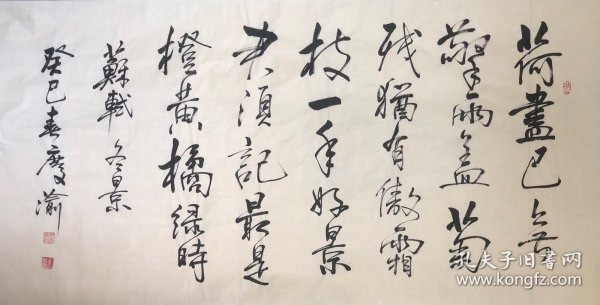 荷盡已無
擎雨盖菊
残猶有傲霜
枝一年好景
君須記最是
橙黄橘绿時
蘇軾 冬景
癸巳春渝
孔夫子旧书网
www.kongfz.com